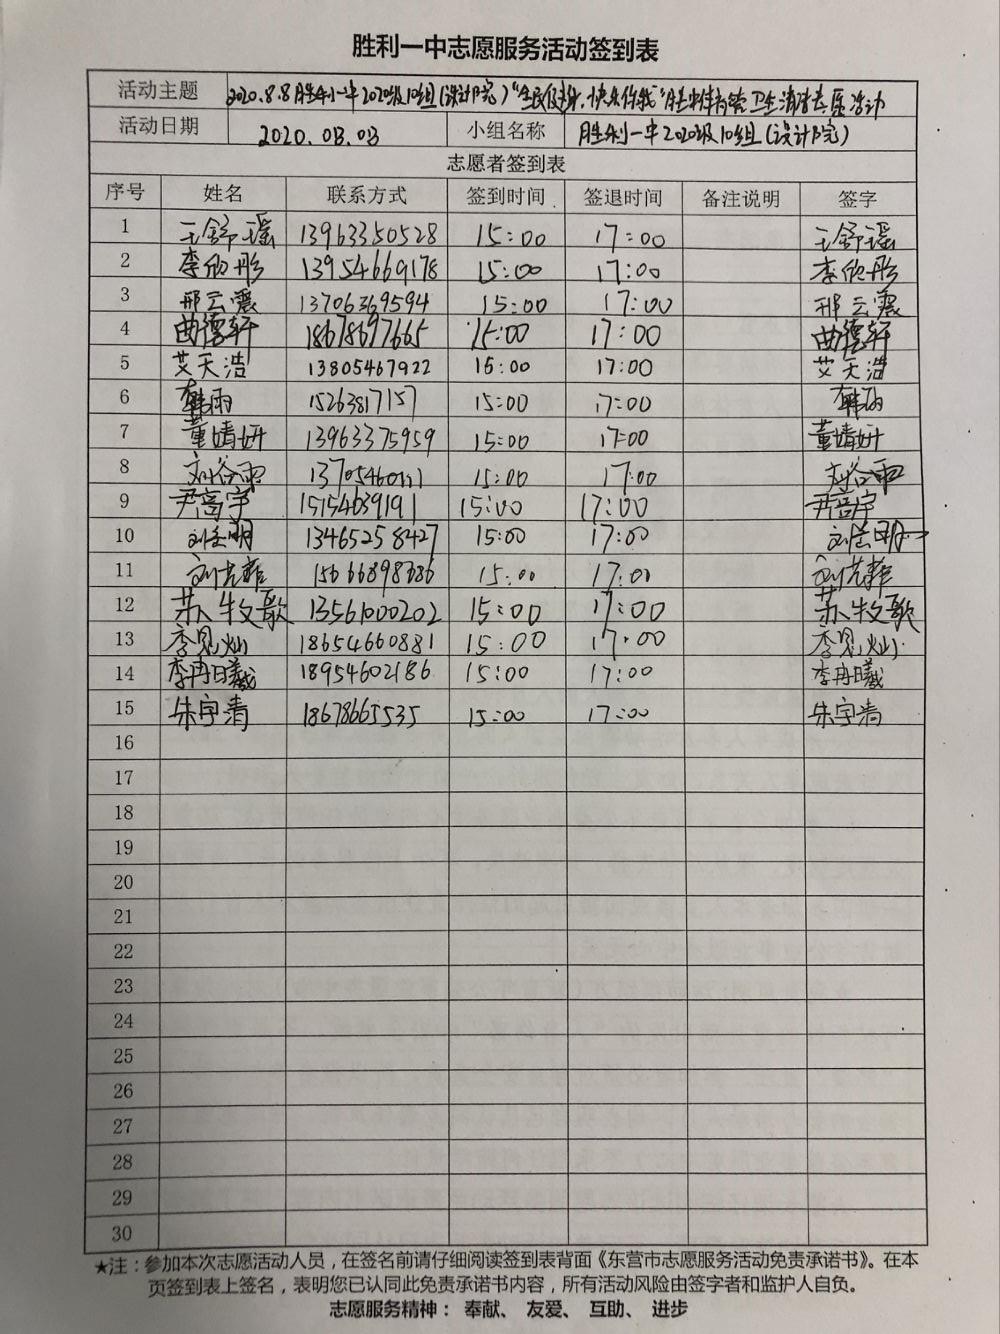 胜利一中志愿服务活动签到表
活动主题 2020.8.8胜利一中2020级10组(设计院)"全民健身,快乐你我"胜中体育馆卫生清洁志愿活动
活动日期 2020.08.08 小组名称 胜利一中2020级10组(设计院)
志愿者签到表
序号 姓名 联系方式 签到时间 签退时间 备注说明 签字
1 王舒瑶 13963350528 15:00 17:00 王舒瑶
2 李欣彤 13954669178 15:00 17:00 李欣彤
3 邢云震 13706369594 15:00 17:00 邢云震
4 曲德轩 18678697665 15:00 17:00 曲德轩
5 艾天浩 13805467922 15:00 17:00 艾天浩
6 韩雨 15263817157 15:00 17:00 韩雨
7 董婧妍 13963375959 15:00 17:00 董婧妍
8 刘谷雨 15:00 17:00 刘谷雨
9 尹音宇 15154639191 15:00 17:00 尹音宇
10 13465258427 15:00 17:00
11 15666898686 15:00 17:00
12 苏牧歌 13561000202 15:00 17:00 苏牧歌
13 李见灿 18654660881 15:00 17:00 李见灿
14 李冉曦 18954602186 15:00 17:00 李冉曦
15 朱宇清 18678665535 15:00 17:00 朱宇清
16
17
18
19
20
21
22
23
24
25
26
27
28
29
30
★注：参加本次志愿活动人员，在签名前请仔细阅读签到表背面《东营市志愿服务活动免责承诺书》。在本
页签到表上签名，表明您已认同此免责承诺书内容，所有活动风险由签字者和监护人自负。
志愿服务精神： 奉献、 友爱、 互助、 进步